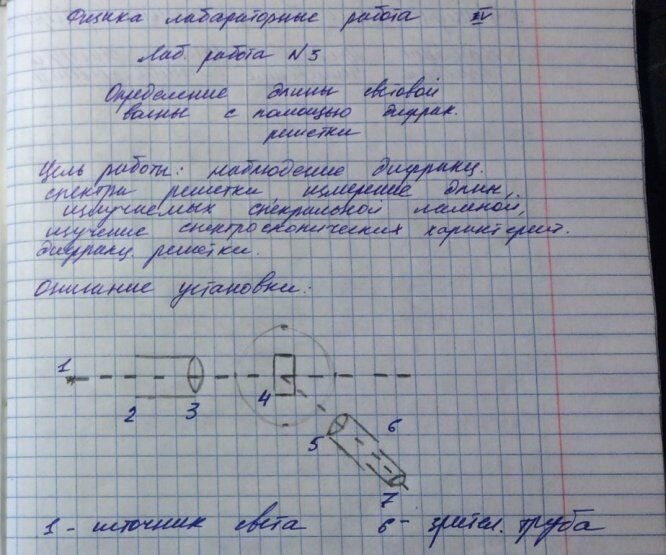 Физика лабараторные работа IV
Лаб. работа N 3
Определение длины световой
волны с помощью дифрак.
решетки
Цель работы: наблюдение дифракц.
спектра решетки, измерение длин,
излучаемых спекральной лампой,
изучение спектроскопических характерист.
дифракц. решетки.
Описание установки:
1 2 3 4 5 6 7
1 - источник света 6 - зрител. труба